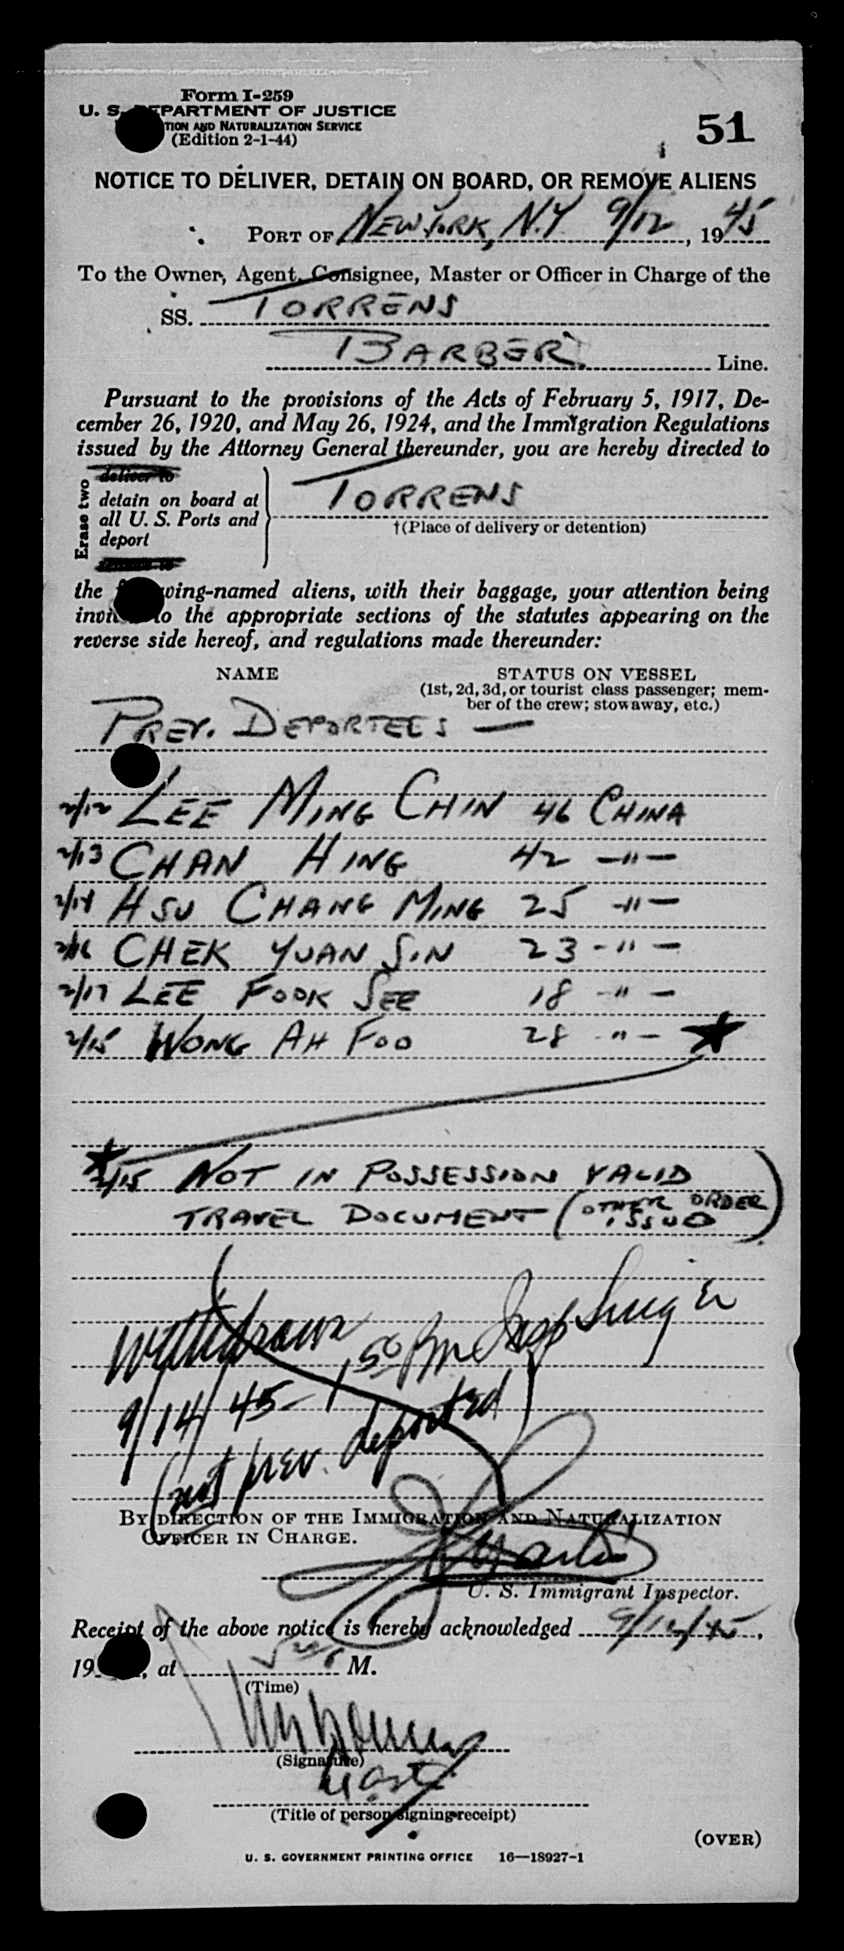 Form I-259
U. S. DEPARTMENT OF JUSTICE
TION AND NATURALIZATION SERVICE
(Edition 2-1-44)
51
NOTICE TO DELIVER, DETAIN ON BOARD, OR REMOVE ALIENS
PORT OF NEW YORK, N.Y 9/12, 1945
To the Owner, Agent, Consignee, Master or Officer in Charge of the
SS. TORRENS
BARBER Line.
Pursuant to the provisions of the Acts of February 5, 1917, De-
cember 26, 1920, and May 26, 1924, and the Immigration Regulations
issued by the Attorney General thereunder, you are hereby directed to
Erase two
deliver to
detain on board at
all U. S. Ports and
deport
TORRENS
†(Place of delivery or detention)
the wing-named aliens, with their baggage, your attention being
invi to the appropriate sections of the statutes appearing on the
reverse side hereof, and regulations made thereunder:
NAME STATUS ON VESSEL
(1st, 2d, 3d, or tourist class passenger; mem-
ber of the crew; stowaway, etc.)
PREV. DEPORTEES —
2/12 LEE MING CHIN 46 CHINA
2/13 CHAN HING 42 —"—
2/14 HSU CHANG MING 25 -"—
2/16 CHEK YUAN SIN 23 -"—
2/17 LEE FOOK SEE 18 -"—
2/15 WONG AH FOO 28 -"— ★
★ 2/15 NOT IN POSSESSION VALID
TRAVEL DOCUMENT (OTHER ORDER
ISSUED)
Withdrawn
9/14/45 - 1 50 Pm Insp
(not prev. deported)
BY DIRECTION OF THE IMMIGRATION AND NATURALIZATION
OFFICER IN CHARGE.
U. S. Immigrant Inspector.
Receipt of the above notice is hereby acknowledged 9/12/45,
19, at M.
(Time)
(Signature)
(Title of person signing receipt)
(OVER)
U. S. GOVERNMENT PRINTING OFFICE 16—18927-1